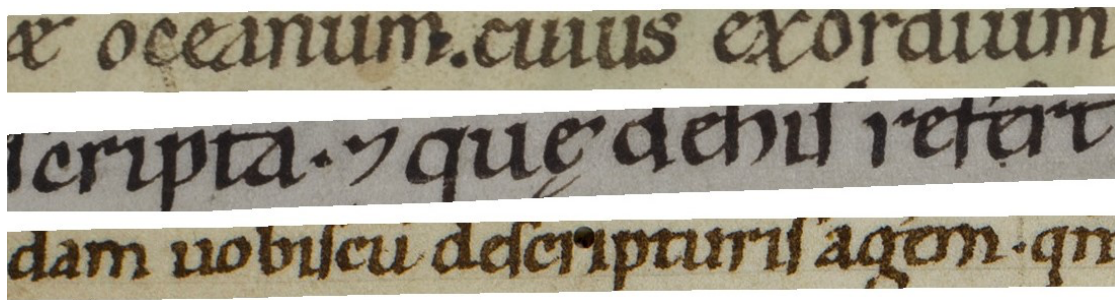 æ oceanum. cuius exordium
scripta· ⁊ quę dehis refert
dam uobiscū descripturis agem· qn